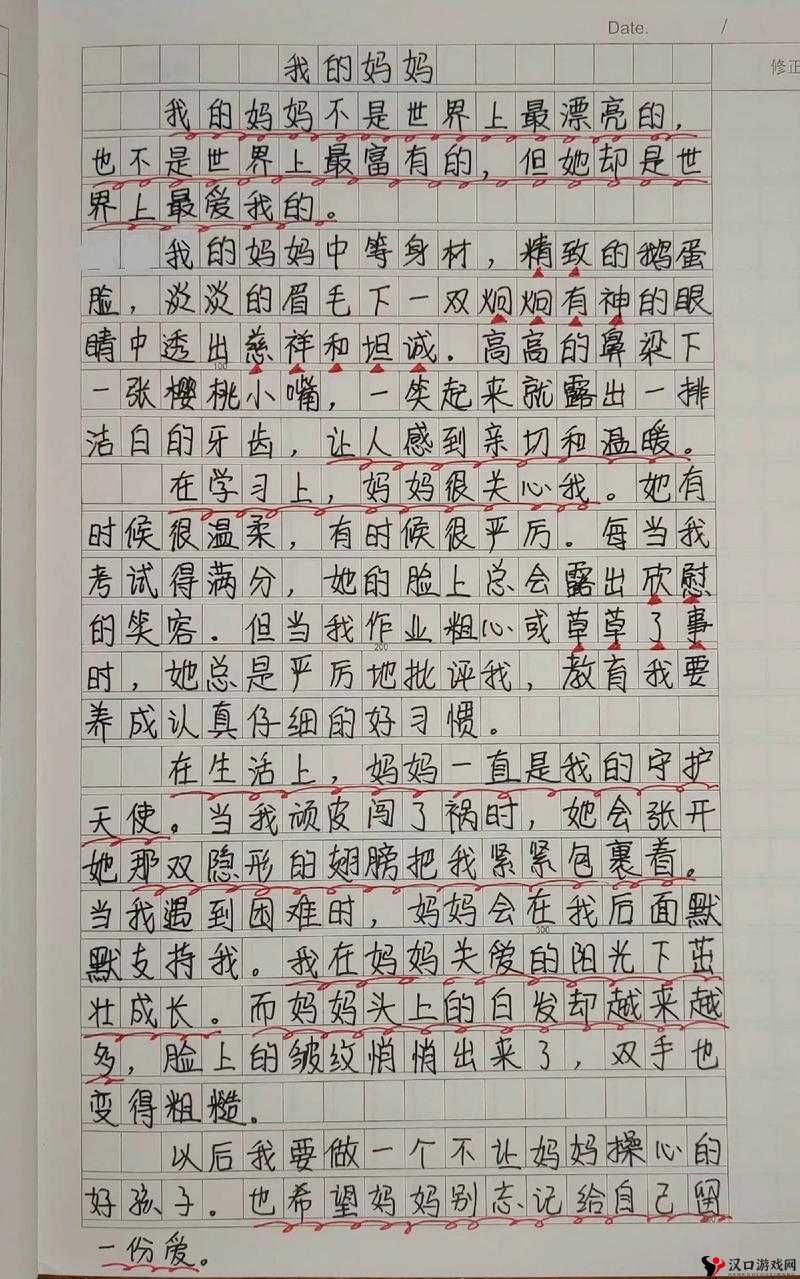 Date. /
修正
我的妈妈
我的妈妈不是世界上最漂亮的，
也不是世界上最富有的，但她却是世
界上最爱我的。
我的妈妈中等身材，精致的鹅蛋
脸，淡淡的眉毛下一双炯炯有神的眼
睛中透出慈祥和坦诚．高高的鼻梁下
100
一张樱桃小嘴，一笑起来就露出一排
洁白的牙齿，让人感到亲切和温暖。
在学习上，妈妈很关心我。她有
时候很温柔，有时候很严厉．每当我
考试得满分，她的脸上总会露出欣慰
的笑容．但当我作业粗心或草草了事
200
时，她总是严厉地批评我，教育我要
养成认真仔细的好习惯。
在生活上，妈妈一直是我的守护
天使。当我顽皮闯了祸时，她会张开
她那双隐形的翅膀把我紧紧包裹着。
当我遇到困难时，妈妈会在我后面默
300
默支持我。我在妈妈关爱的阳光下茁
壮成长。而妈妈头上的白发却越来越
多，脸上的皱纹悄悄出来了，双手也
变得粗糙。
以后我要做一个不让妈妈操心的
好孩子．也希望妈妈别忘记给自己留
一份爱。
汉口游戏网